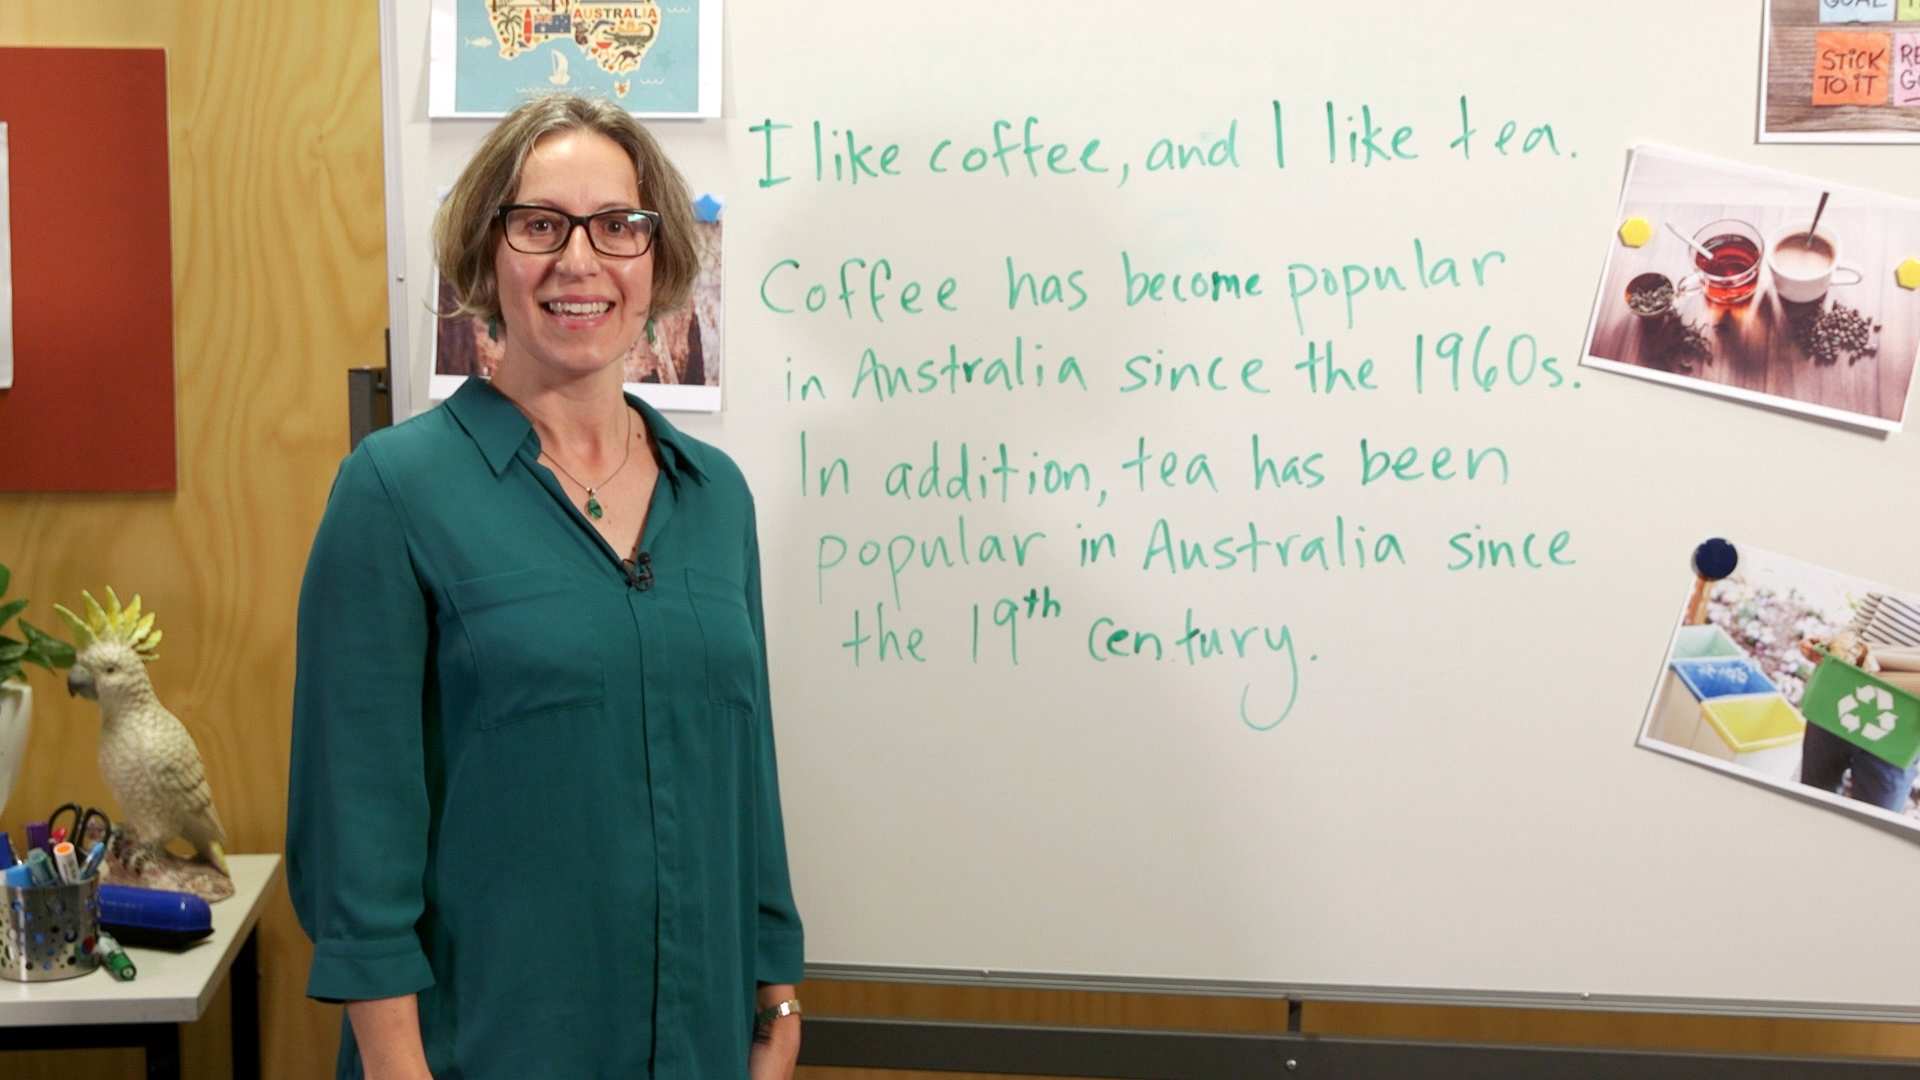 AUSTRALIA
STICK
TO IT
I like coffee, and I like tea.
Coffee has become popular
in Australia since the 1960s.
In addition, tea has been
popular in Australia since
the 19th century.